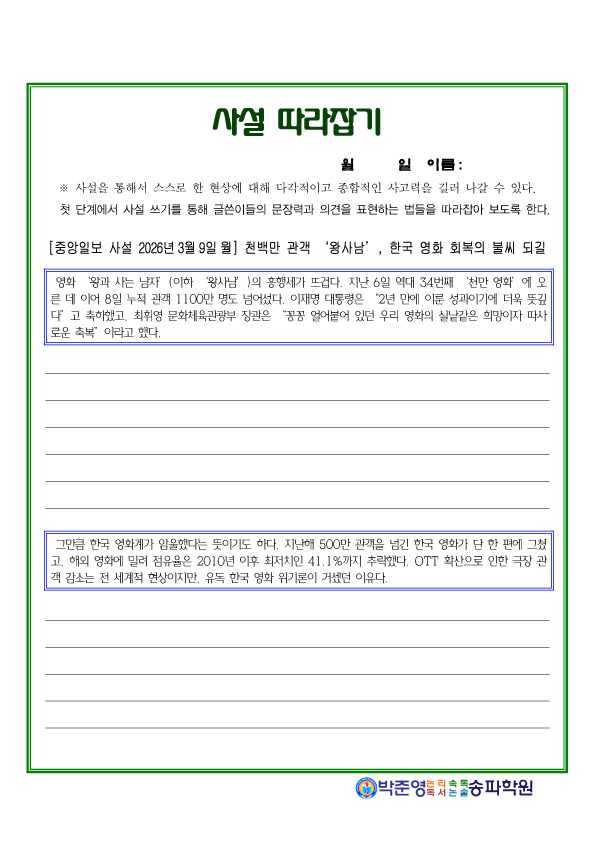 사설 따라잡기
월 일 이름:
※ 사설을 통해서 스스로 한 현상에 대해 다각적이고 종합적인 사고력을 길러 나갈 수 있다.
첫 단계에서 사설 쓰기를 통해 글쓴이들의 문장력과 의견을 표현하는 법들을 따라잡아 보도록 한다.
[중앙일보 사설 2026년 3월 9일 월] 천백만 관객 ‘왕사남’, 한국 영화 회복의 불씨 되길
영화 ‘왕과 사는 남자’(이하 ‘왕사남’)의 흥행세가 뜨겁다. 지난 6일 역대 34번째 ‘천만 영화’에 오
른 데 이어 8일 누적 관객 1100만 명도 넘어섰다. 이재명 대통령은 “2년 만에 이룬 성과이기에 더욱 뜻깊
다”고 축하했고, 최휘영 문화체육관광부 장관은 “꽁꽁 얼어붙어 있던 우리 영화의 실낱같은 희망이자 따사
로운 축복”이라고 했다.
그만큼 한국 영화계가 암울했다는 뜻이기도 하다. 지난해 500만 관객을 넘긴 한국 영화가 단 한 편에 그쳤
고, 해외 영화에 밀려 점유율은 2010년 이후 최저치인 41.1%까지 추락했다. OTT 확산으로 인한 극장 관
객 감소는 전 세계적 현상이지만, 유독 한국 영화 위기론이 거셌던 이유다.
박준영 논리속독 독서논술 송파학원